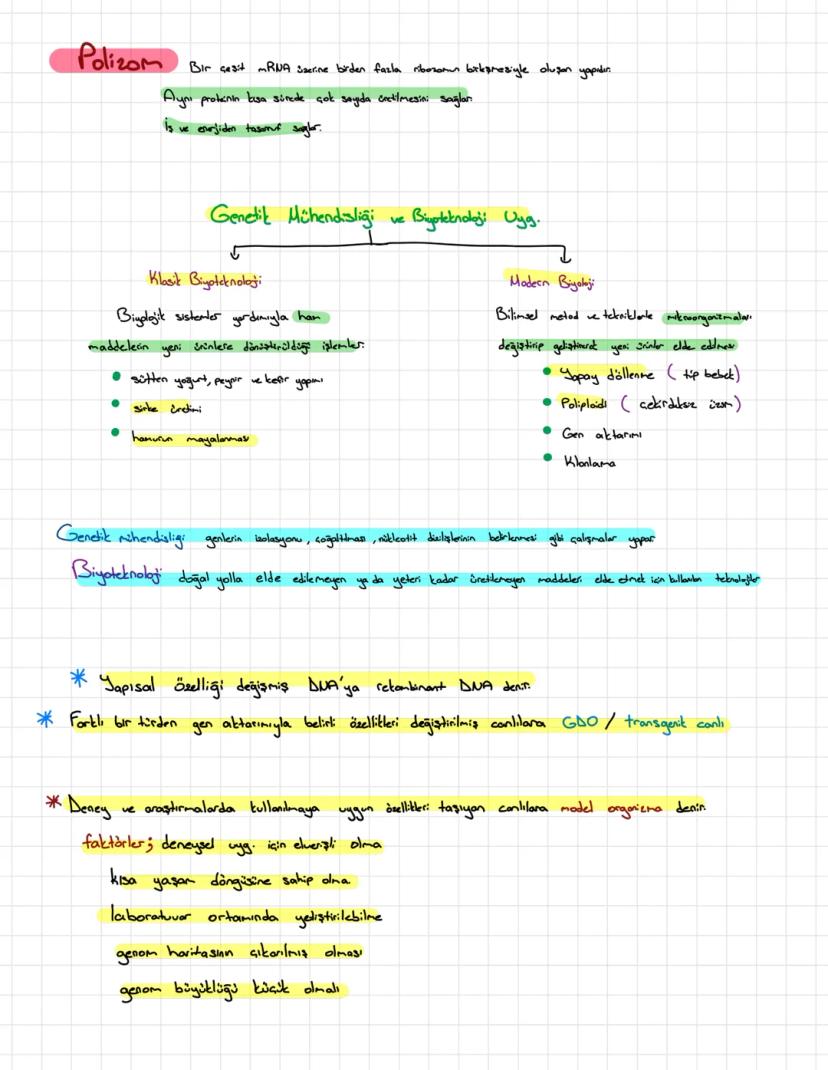 Polizom Bir çeşit mRNA üzerine birden fazla ribozomun birleşmesiyle oluşan yapıdır.
Aynı proteinin kısa sürede çok sayıda üretilmesini sağlar.
İş ve enerjiden tasarruf sağlar.
Genetik Mühendisliği ve Biyoteknoloji Uyg.
Klasik Biyoteknoloji
Biyolojik sistemler yardımıyla ham
maddelerin yeni ürünlere dönüştürüldüğü işlemler.
• sütten yoğurt, peynir ve kefir yapımı
• sirke üretimi
• hamurun mayalanması
Modern Biyoloji
Bilimsel metod ve tekniklerle mikroorganizmaları
değiştirip geliştirerek yeni ürünler elde edilmesi
• Yapay döllenme ( tüp bebek)
• Poliploidi ( çekirdeksiz üzüm)
• Gen aktarımı
• Klonlama
Genetik mühendisliği genlerin izolasyonu, çoğaltılması, nükleotit dizilişlerinin belirlenmesi gibi çalışmalar yapar
Biyoteknoloji doğal yolla elde edilemeyen ya da yeteri kadar üretilemeyen maddeleri elde etmek için kullanılan teknolojiler
* Yapısal özelliği değişmiş DNA'ya rekombinant DNA denir.
* Farklı bir türden gen aktarımıyla belirli özellikleri değiştirilmiş canlılara GDO / transgenik canlı
* Deney ve araştırmalarda kullanılmaya uygun özellikleri taşıyan canlılara model organizma denir.
faktörler; deneysel uyg. için elverişli olma
kısa yaşam döngüsüne sahip olma.
laboratuvar ortamında yetiştirilebilme
genom haritasının çıkarılmış olması
genom büyüklüğü küçük olmalı